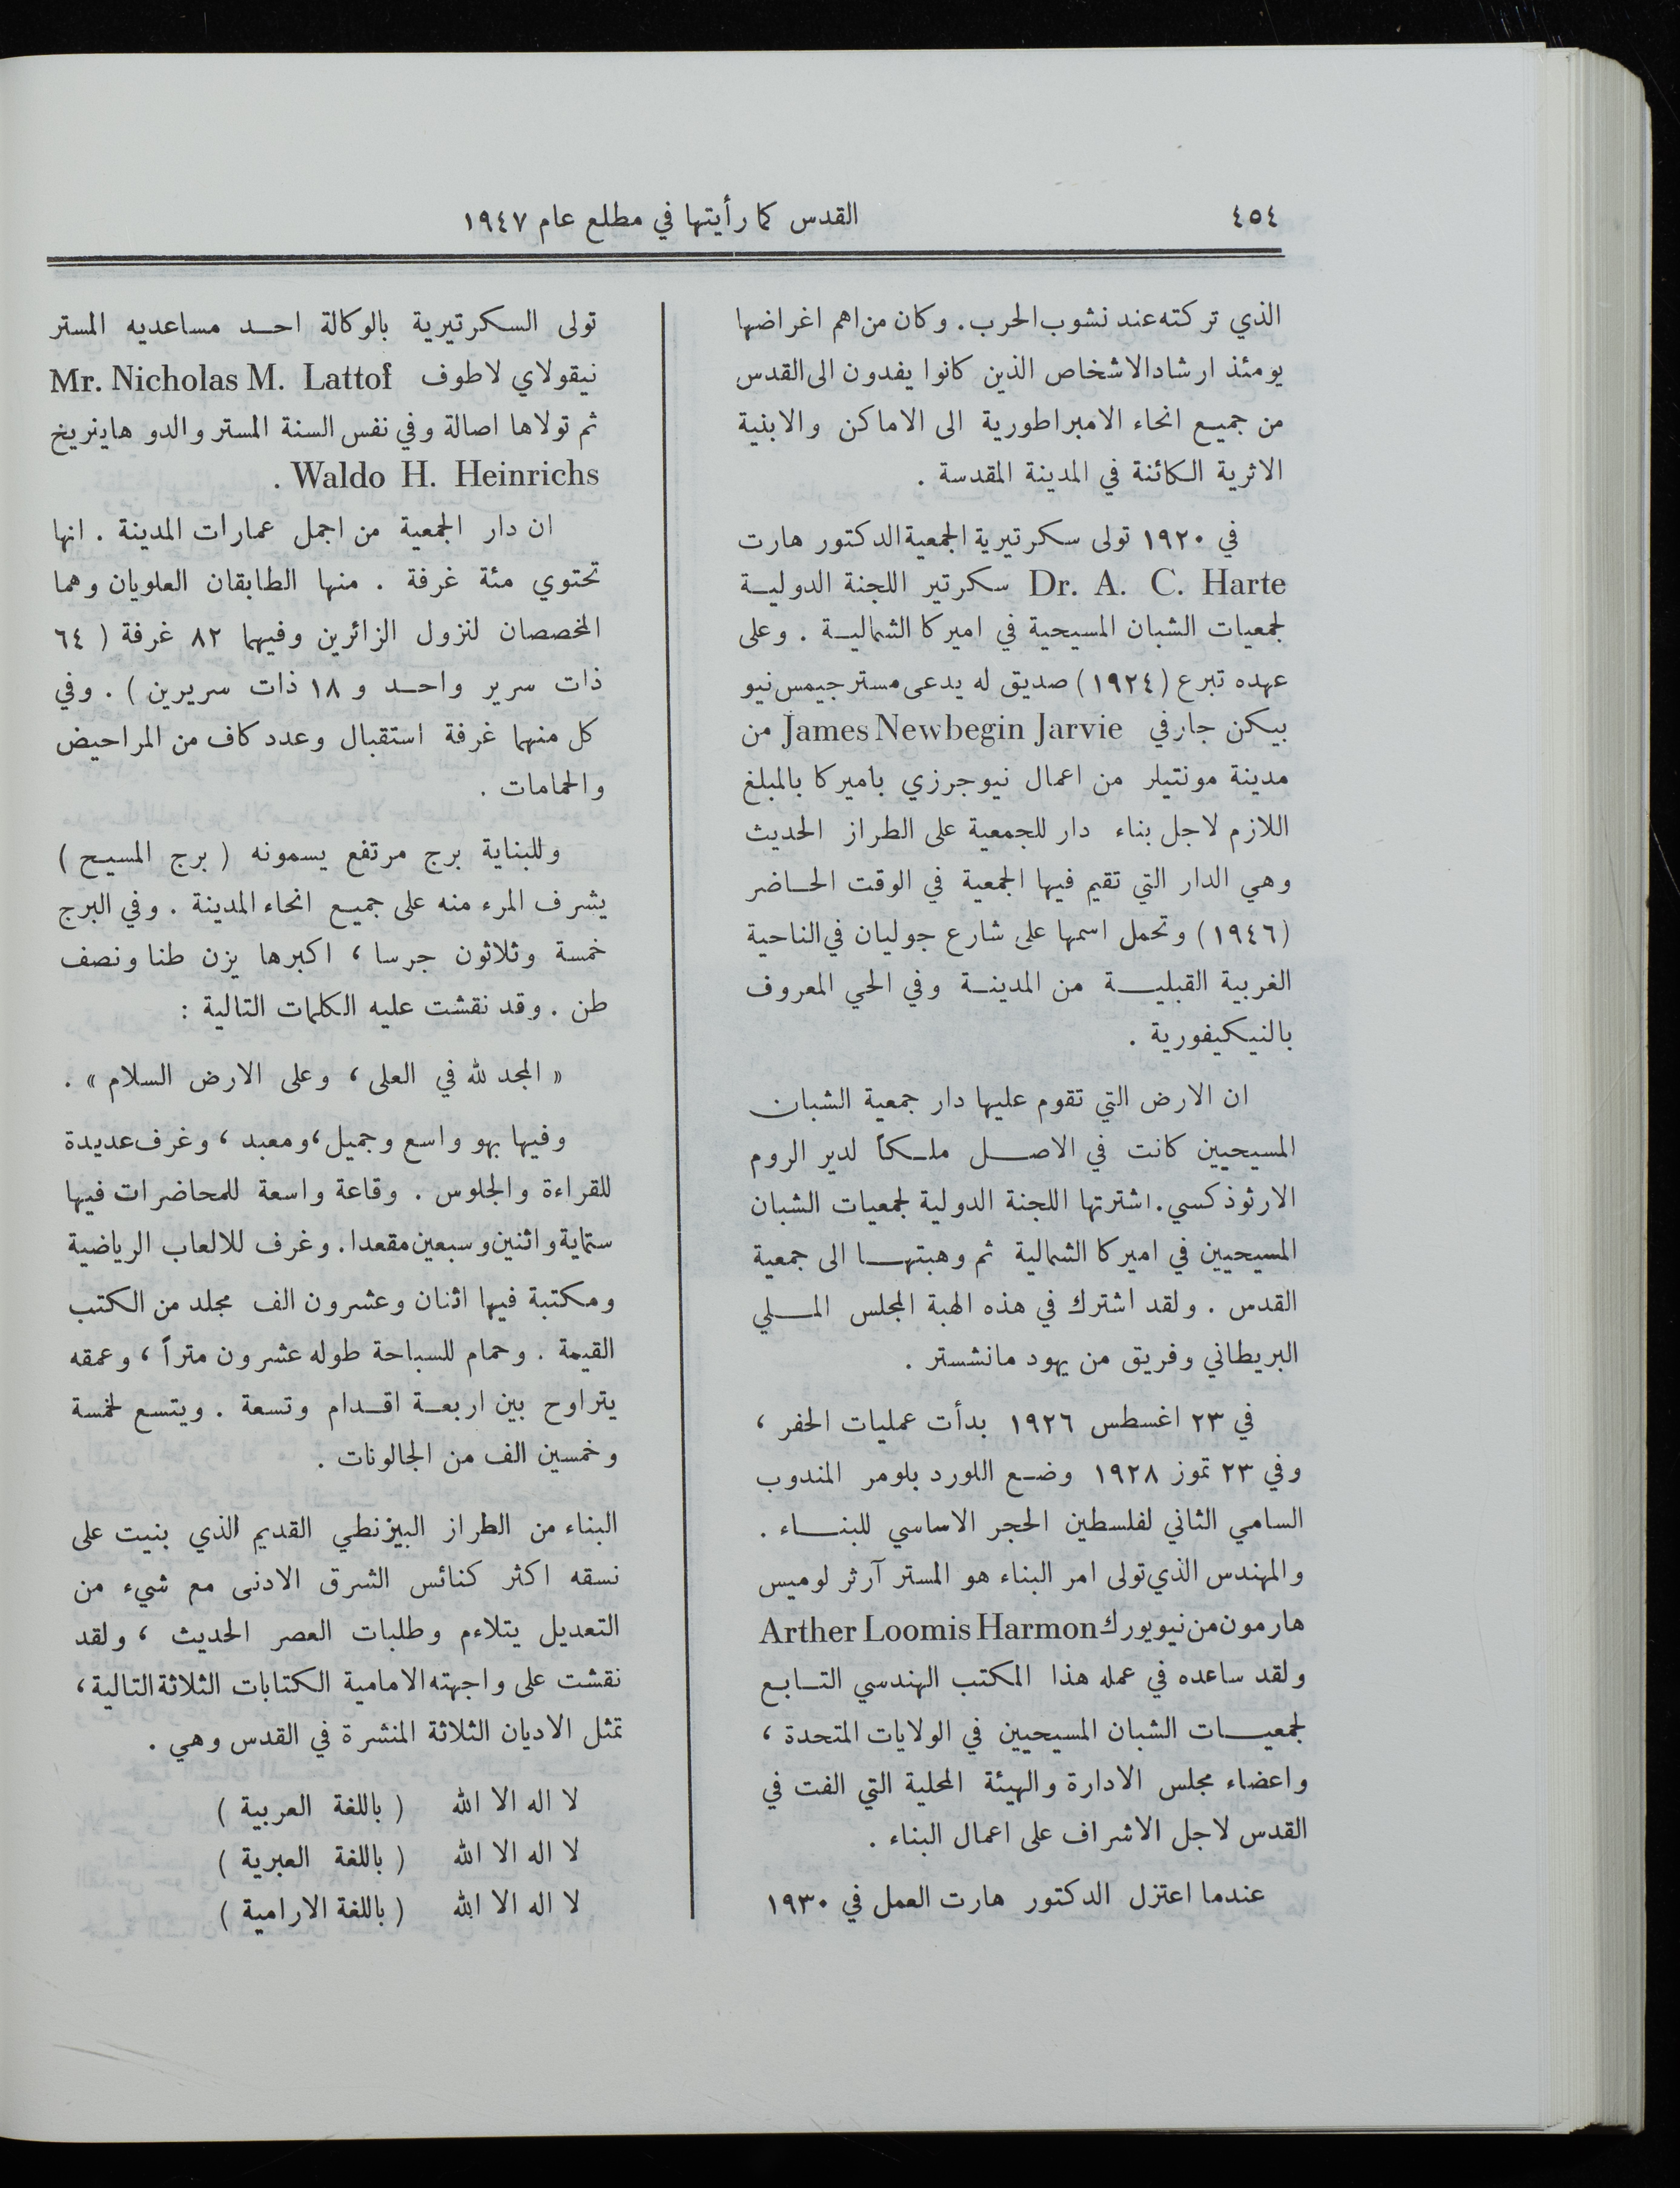 ٤٥٤
القدس كما رأيتها في مطلع عام ١٩٤٧
الذي تركته عند نشوب الحرب. وكان من اهم اغراضها
يومئذ ارشاد الاشخاص الذين كانوا يفدون الى القدس
من جميع انحاء الامبراطورية الى الاماكن والابنية
الاثرية الكائنة في المدينة المقدسة .
في ١٩٢٠ تولى سكرتيرية الجمعية الدكتور هارت
Dr. A. C. Harte سكرتير اللجنة الدولية
لجمعيات الشبان المسيحية في اميركا الشمالية . وعلى
عهده تبرع (١٩٢٤) صديق له يدعى مستر جيمس نيو
بيكن جارفي James Newbegin Jarvie من
مدينة مونتيلر من اعمال نيوجرزي باميركا بالمبلغ
اللازم لاجل بناء دار للجمعية على الطراز الحديث
وهي الدار التي تقيم فيها الجمعية في الوقت الحاضر
(١٩٤٦) وتحمل اسمها على شارع جوليان في الناحية
الغربية القبلية من المدينة وفي الحي المعروف
بالنيكيفورية .
ان الارض التي تقوم عليها دار جمعية الشبان
المسيحيين كانت في الاصل ملكاً لدير الروم
الارثوذكسي. اشترتها اللجنة الدولية لجمعيات الشبان
المسيحيين في اميركا الشمالية ثم وهبتها الى جمعية
القدس . ولقد اشترك في هذه الهبة المجلس الملي
البريطاني وفريق من يهود مانشستر .
في ٢٣ اغسطس ١٩٢٦ بدأت عمليات الحفر ،
وفي ٢٣ تموز ١٩٢٨ وضع اللورد بلومر المندوب
السامي الثاني لفلسطين الحجر الاساسي للبناء .
والمهندس الذي تولى امر البناء هو المستر آرثر لوميس
هارمون من نيويورك Arther Loomis Harmon
ولقد ساعده في عمله هذا المكتب الهندسي التابع
لجمعيات الشبان المسيحيين في الولايات المتحدة ،
واعضاء مجلس الادارة والهيئة المحلية التي الفت في
القدس لاجل الاشراف على اعمال البناء .
عندما اعتزل الدكتور هارت العمل في ١٩٣٠
تولى السكرتيرية بالوكالة احد مساعديه المستر
نيقولاي لاطوف Mr. Nicholas M. Lattof
ثم تولاها اصالة وفي نفس السنة المستر والدو هاينريخ
Waldo H. Heinrichs .
ان دار الجمعية من اجمل عمارات المدينة . انها
تحتوي مئة غرفة . منها الطابقان العلويان وهما
المخصصان لنزول الزائرين وفيهما ٨٢ غرفة ( ٦٤
ذات سرير واحد و ١٨ ذات سريرين ) . وفي
كل منهما غرفة استقبال وعدد كاف من المراحيض
والحمامات .
وللبناية برج مرتفع يسمونه ( برج المسيح )
يشرف المرء منه على جميع انحاء المدينة . وفي البرج
خمسة وثلاثون جرسا ، اكبرها يزن طنا ونصف
طن . وقد نقشت عليه الكلمات التالية :
« المجد لله في العلى ، وعلى الارض السلام » .
وفيها بهو واسع وجميل، ومعبد ، وغرف عديدة
للقراءة والجلوس . وقاعة واسعة للمحاضرات فيها
ستماية واثنين وسبعين مقعدا. وغرف للالعاب الرياضية
ومكتبة فيها اثنان وعشرون الف مجلد من الكتب
القيمة . وحمام للسباحة طوله عشرون متراً ، وعمقه
يتراوح بين اربعة اقدام وتسعة . ويتسع لخمسة
وخمسين الف من الجالونات .
البناء من الطراز البيزنطي القديم الذي بنيت على
نسقه اكثر كنائس الشرق الادنى مع شيء من
التعديل يتلاءم وطلبات العصر الحديث ، ولقد
نقشت على واجهته الامامية الكتابات الثلاثة التالية ،
تمثل الاديان الثلاثة المنشرة في القدس وهي .
لا اله الا الله ( باللغة العربية )
لا اله الا الله ( باللغة العبرية )
لا اله الا الله ( باللغة الارامية )